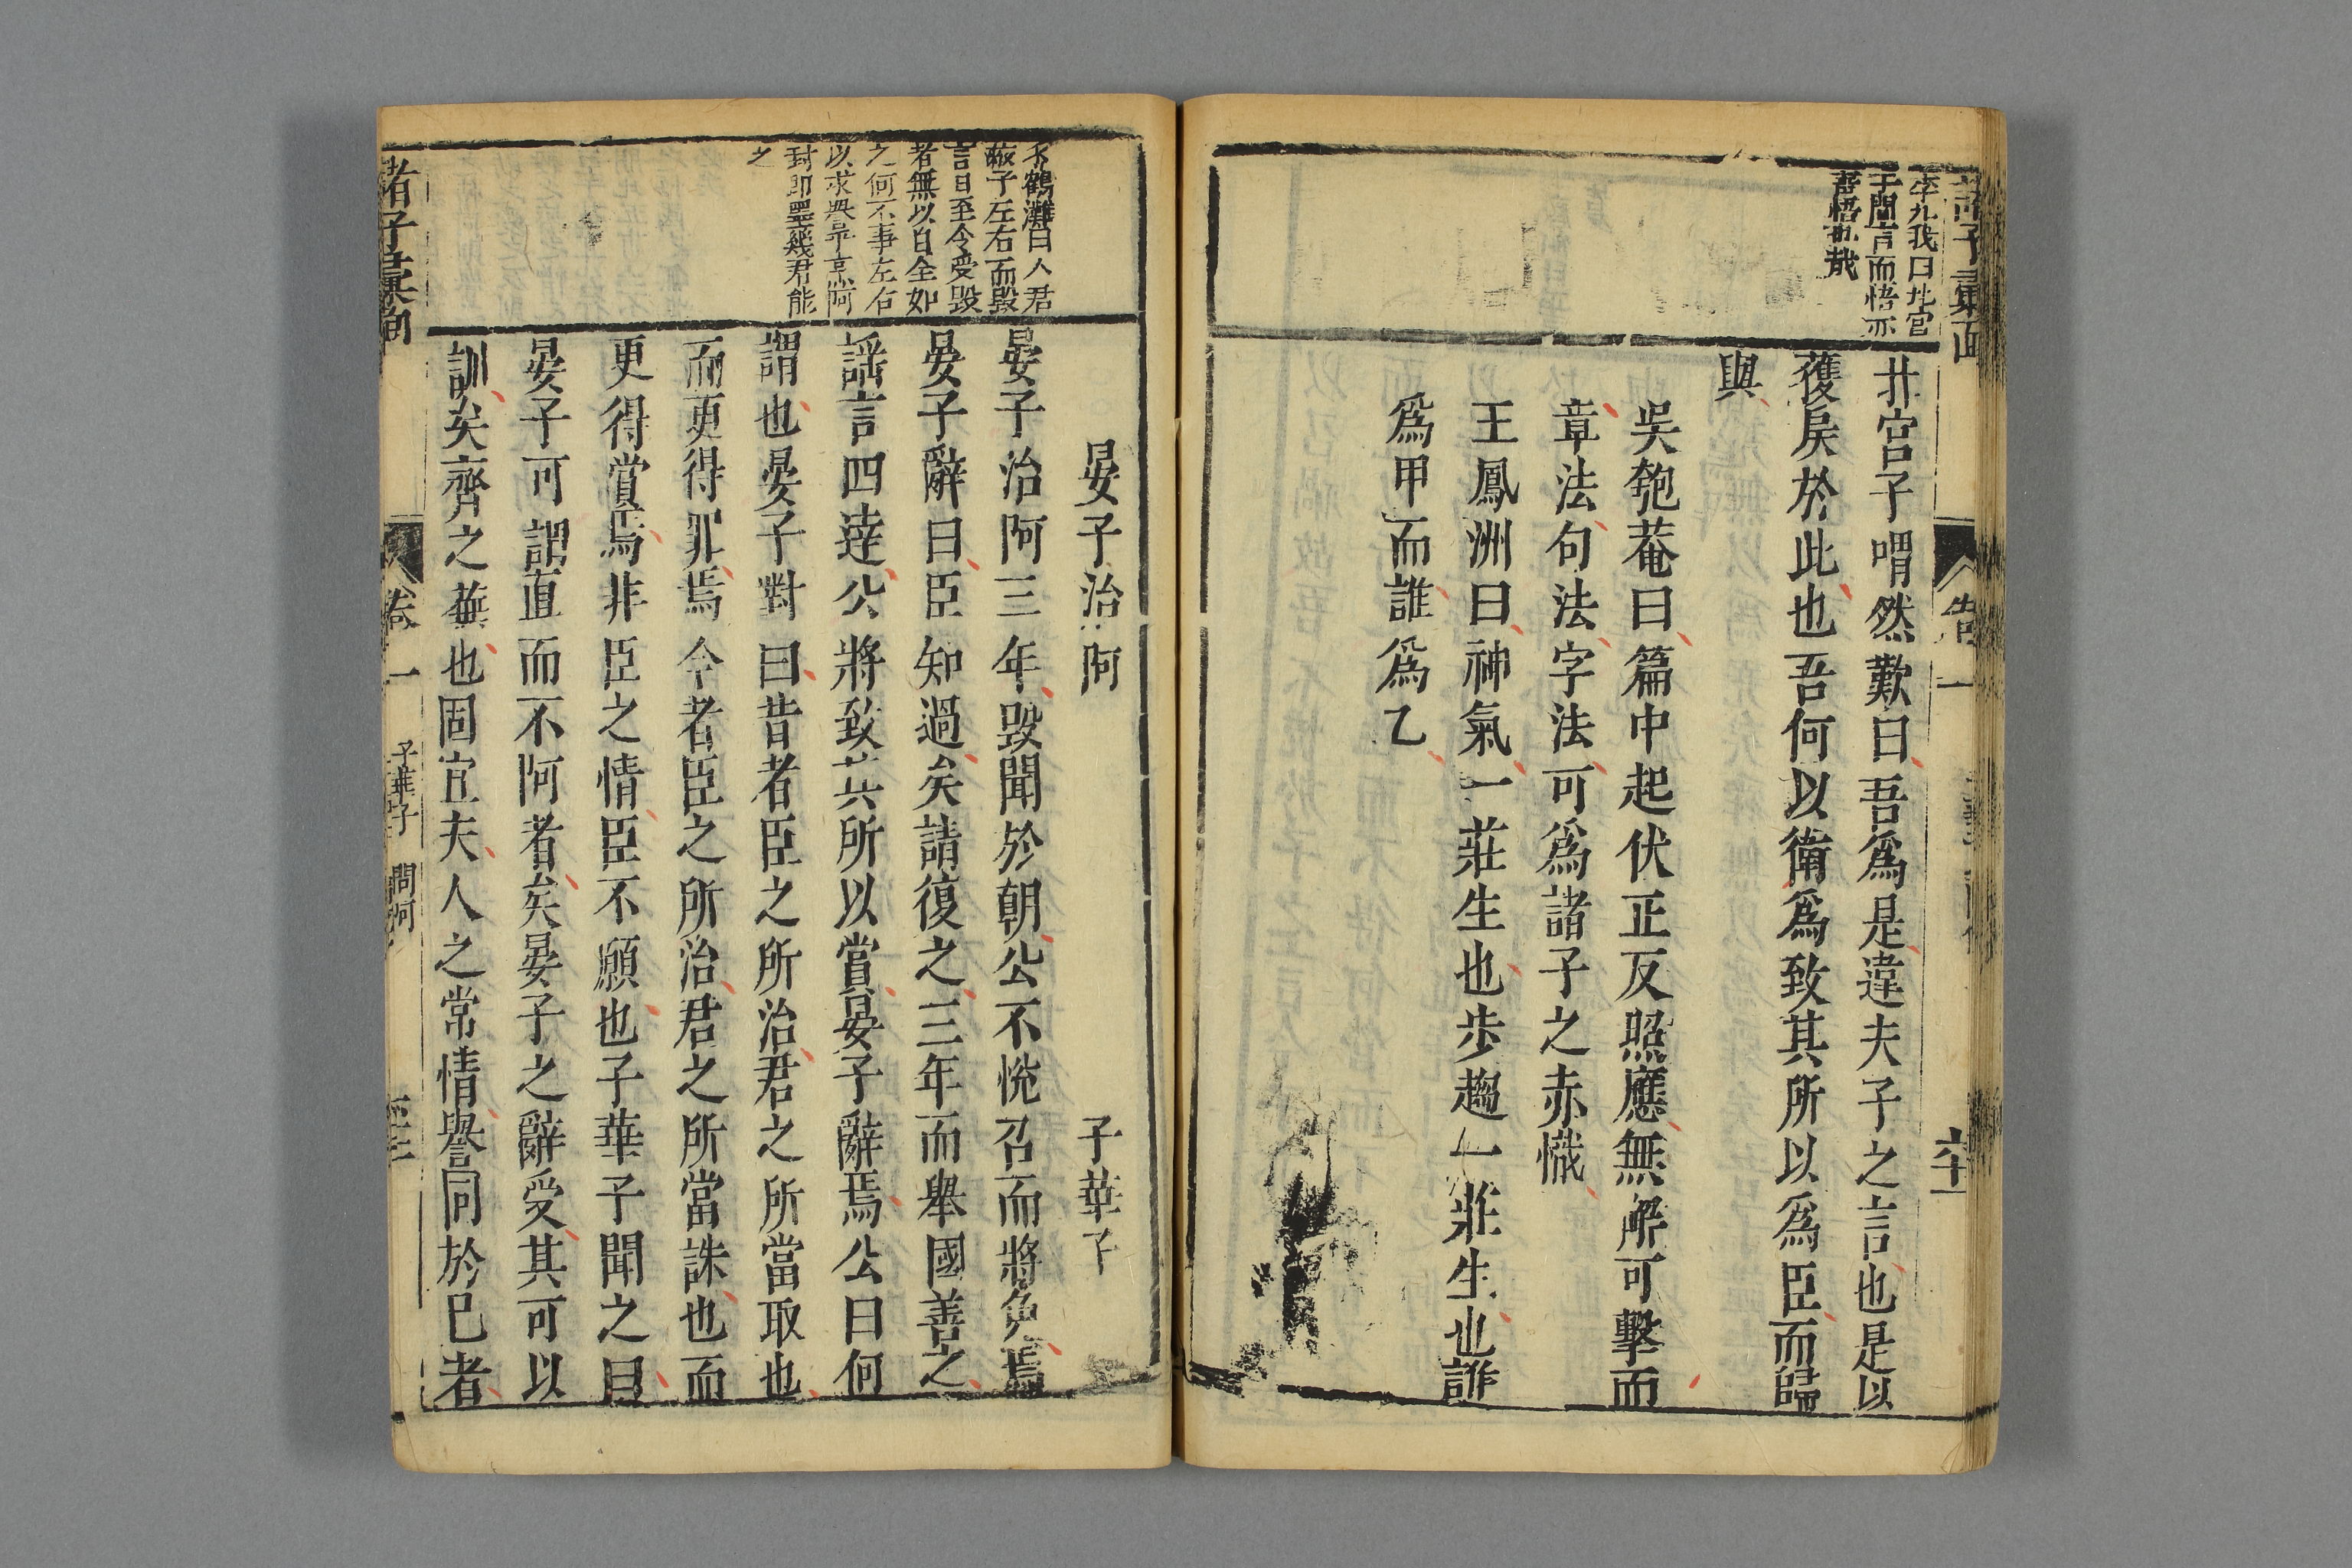 李九我曰北宮
子聞言而悟亦
善悟也哉
北宮子喟然歎曰吾爲是違夫子之言也是以
獲戾於此也吾何以衛爲致其所以爲臣而歸
與
吳匏菴曰篇中起伏正反照應無解可擊而
章法句法字法可爲諸子之赤幟
王鳳洲曰神氣一莊生也步趨一莊生也誰
爲甲而誰爲乙
鶴灘曰人君
蔽于左右而毀
言日至今受毀
者無以自全如
之何不事左右
以求譽乎烹阿
封即墨幾君能
之
晏子治阿 子華子
晏子治阿三年毀聞於朝公不悅召而將免焉
晏子辭曰臣知過矣請復之三年而舉國善之
謡言四達公將致其所以賞晏子辭焉公曰何
謂也晏子對曰昔者臣之所治君之所當取也
而更得罪焉今者臣之所治君之所當誅也而
更得賞焉非臣之情臣不願也子華子聞之曰
晏子可謂直而不阿者矣晏子之辭受其可以
訓矣齊之蕪也固宜夫人之常情譽同於已者
諸子彙函
卷一
子華子 問阿